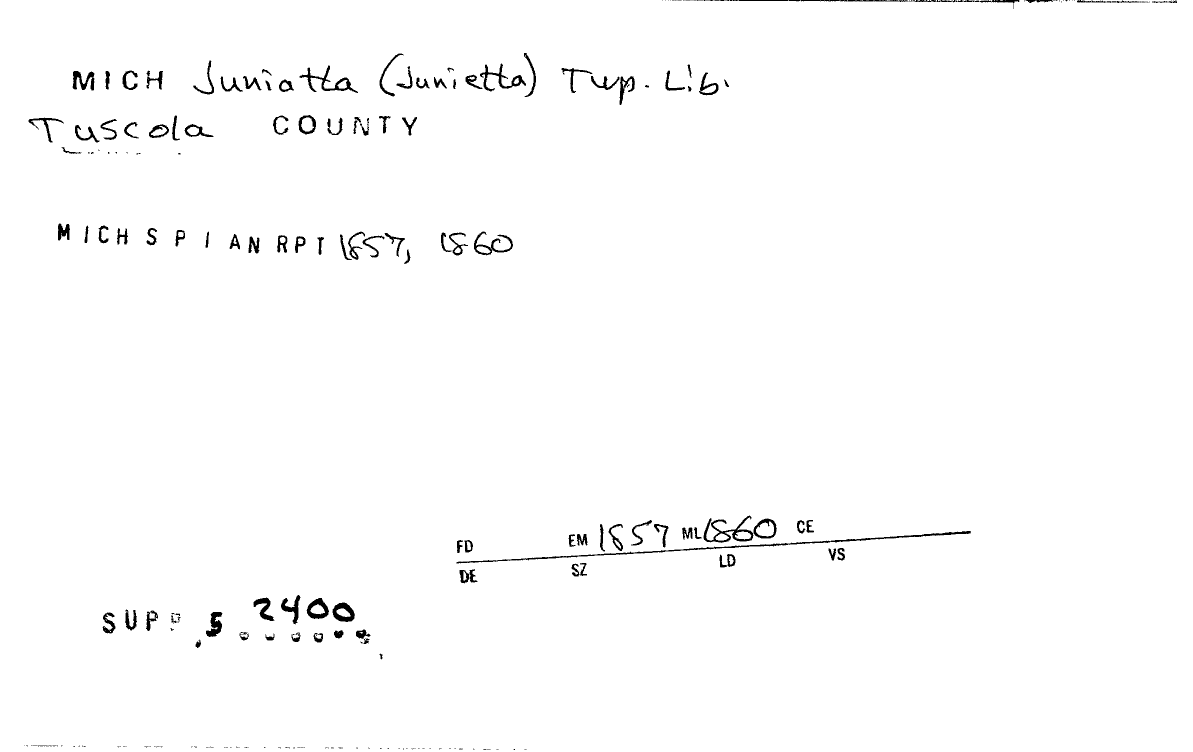 MICH Juniatta (Junietta) Twp. Lib.
Tuscola COUNTY
MICH S P I AN RPT 1857, 1860
FD EM 1857 ML 1860 CE
DE SZ LD VS
SUPP 5 2400